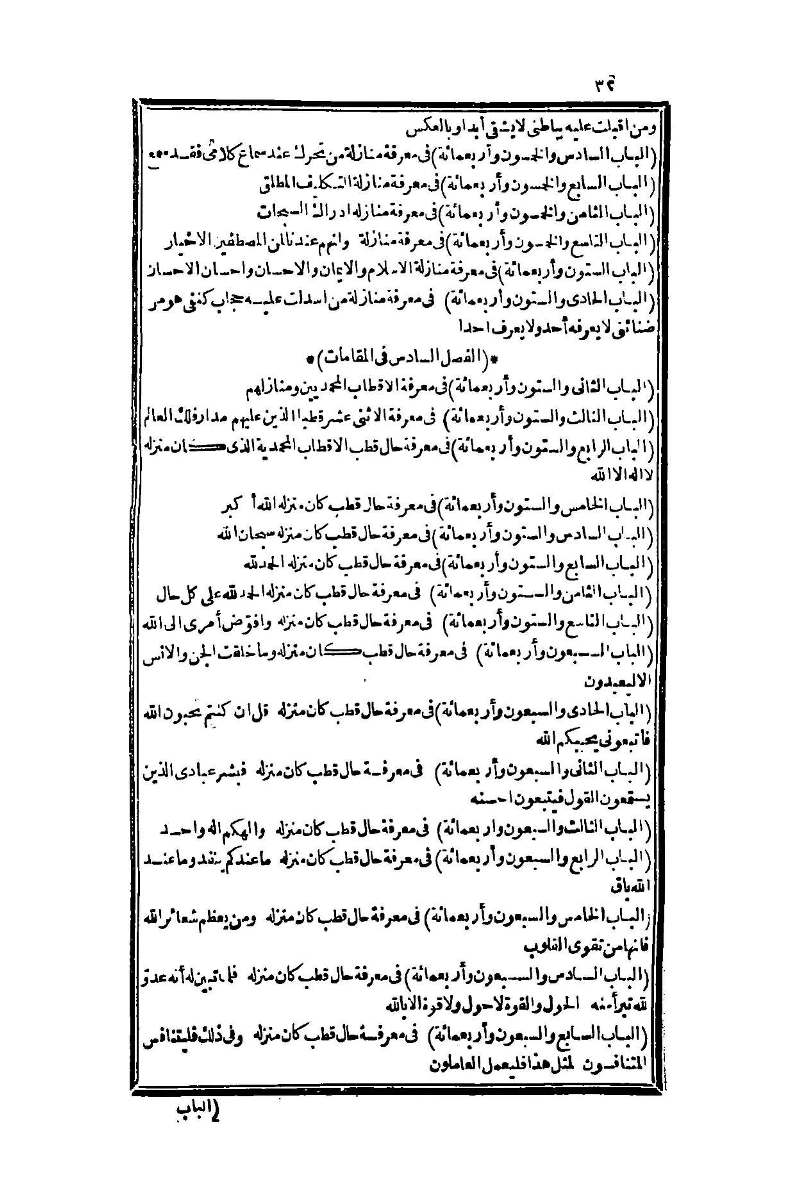 ٣٤
ومن اقبلت عليه بباطنى لا يشقى أبدا وبالعكس
(الباب السادس والخمسون وأربعمائة) فى معرفة منازلة من تحرك عند سماع كلامى فقد سمع
(الباب السابع والخمسون وأربعمائة) فى معرفة منازلة التكليف المطلق
(الباب الثامن والخمسون وأربعمائة) فى معرفة منازلة ادراك السبحات
(الباب التاسع والخمسون وأربعمائة) فى معرفة منازلة وانهم عندنا لمن المصطفين الاخيار
(الباب الستون وأربعمائة) فى معرفة منازلة الاسلام والايمان والاحسان واحسان الاحسان
(الباب الحادى والستون وأربعمائة) فى معرفة منازلة من اسدلت عليه حجاب كنفى هو من
ضنائنى لا يعرفه أحد ولا يعرف احدا
*(الفصل السادس فى المقامات)*
(الباب الثانى والستون وأربعمائة) فى معرفة الاقطاب المحمديين ومنازلهم
(الباب الثالث والستون وأربعمائة) فى معرفة الاثنى عشر قطبا الذين عليهم مدار فلك العالم
(الباب الرابع والستون وأربعمائة) فى معرفة حال قطب الاقطاب المحمدية الذى كان منزله
لا اله الا الله
(الباب الخامس والستون وأربعمائة) فى معرفة حال قطب كان منزله الله أكبر
(الباب السادس والستون وأربعمائة) فى معرفة حال قطب كان منزله سبحان الله
(الباب السابع والستون وأربعمائة) فى معرفة حال قطب كان منزله الحمد لله
(الباب الثامن والستون وأربعمائة) فى معرفة حال قطب كان منزله الحمد لله على كل حال
(الباب التاسع والستون وأربعمائة) فى معرفة حال قطب كان منزله وافوّض أمرى الى الله
(الباب السبعون وأربعمائة) فى معرفة حال قطب كان منزله وما خلقت الجن والانس
الا ليعبدون
(الباب الحادى والسبعون وأربعمائة) فى معرفة حال قطب كان منزله قل ان كنتم تحبون الله
فاتبعونى يحببكم الله
(الباب الثانى والسبعون وأربعمائة) فى معرفة حال قطب كان منزله فبشر عبادى الذين
يستمعون القول فيتبعون احسنه
(الباب الثالث والسبعون واربعمائة) فى معرفة حال قطب كان منزله والهكم اله واحد
(الباب الرابع والسبعون وأربعمائة) فى معرفة حال قطب كان منزله ما عندكم ينفد وما عند
الله باق
(الباب الخامس والسبعون وأربعمائة) فى معرفة حال قطب كان منزله ومن يعظم شعائر الله
فانها من تقوى القلوب
(الباب السادس والسبعون وأربعمائة) فى معرفة حال قطب كان منزله فلما تبين له أنه عدوّ
لله تبرأ منه الحول والقوة لا حول ولا قوة الا بالله
(الباب السابع والسبعون وأربعمائة) فى معرفة حال قطب كان منزله وفى ذلك فليتنافس
المتنافسون لمثل هذا فليعمل العاملون
(الباب